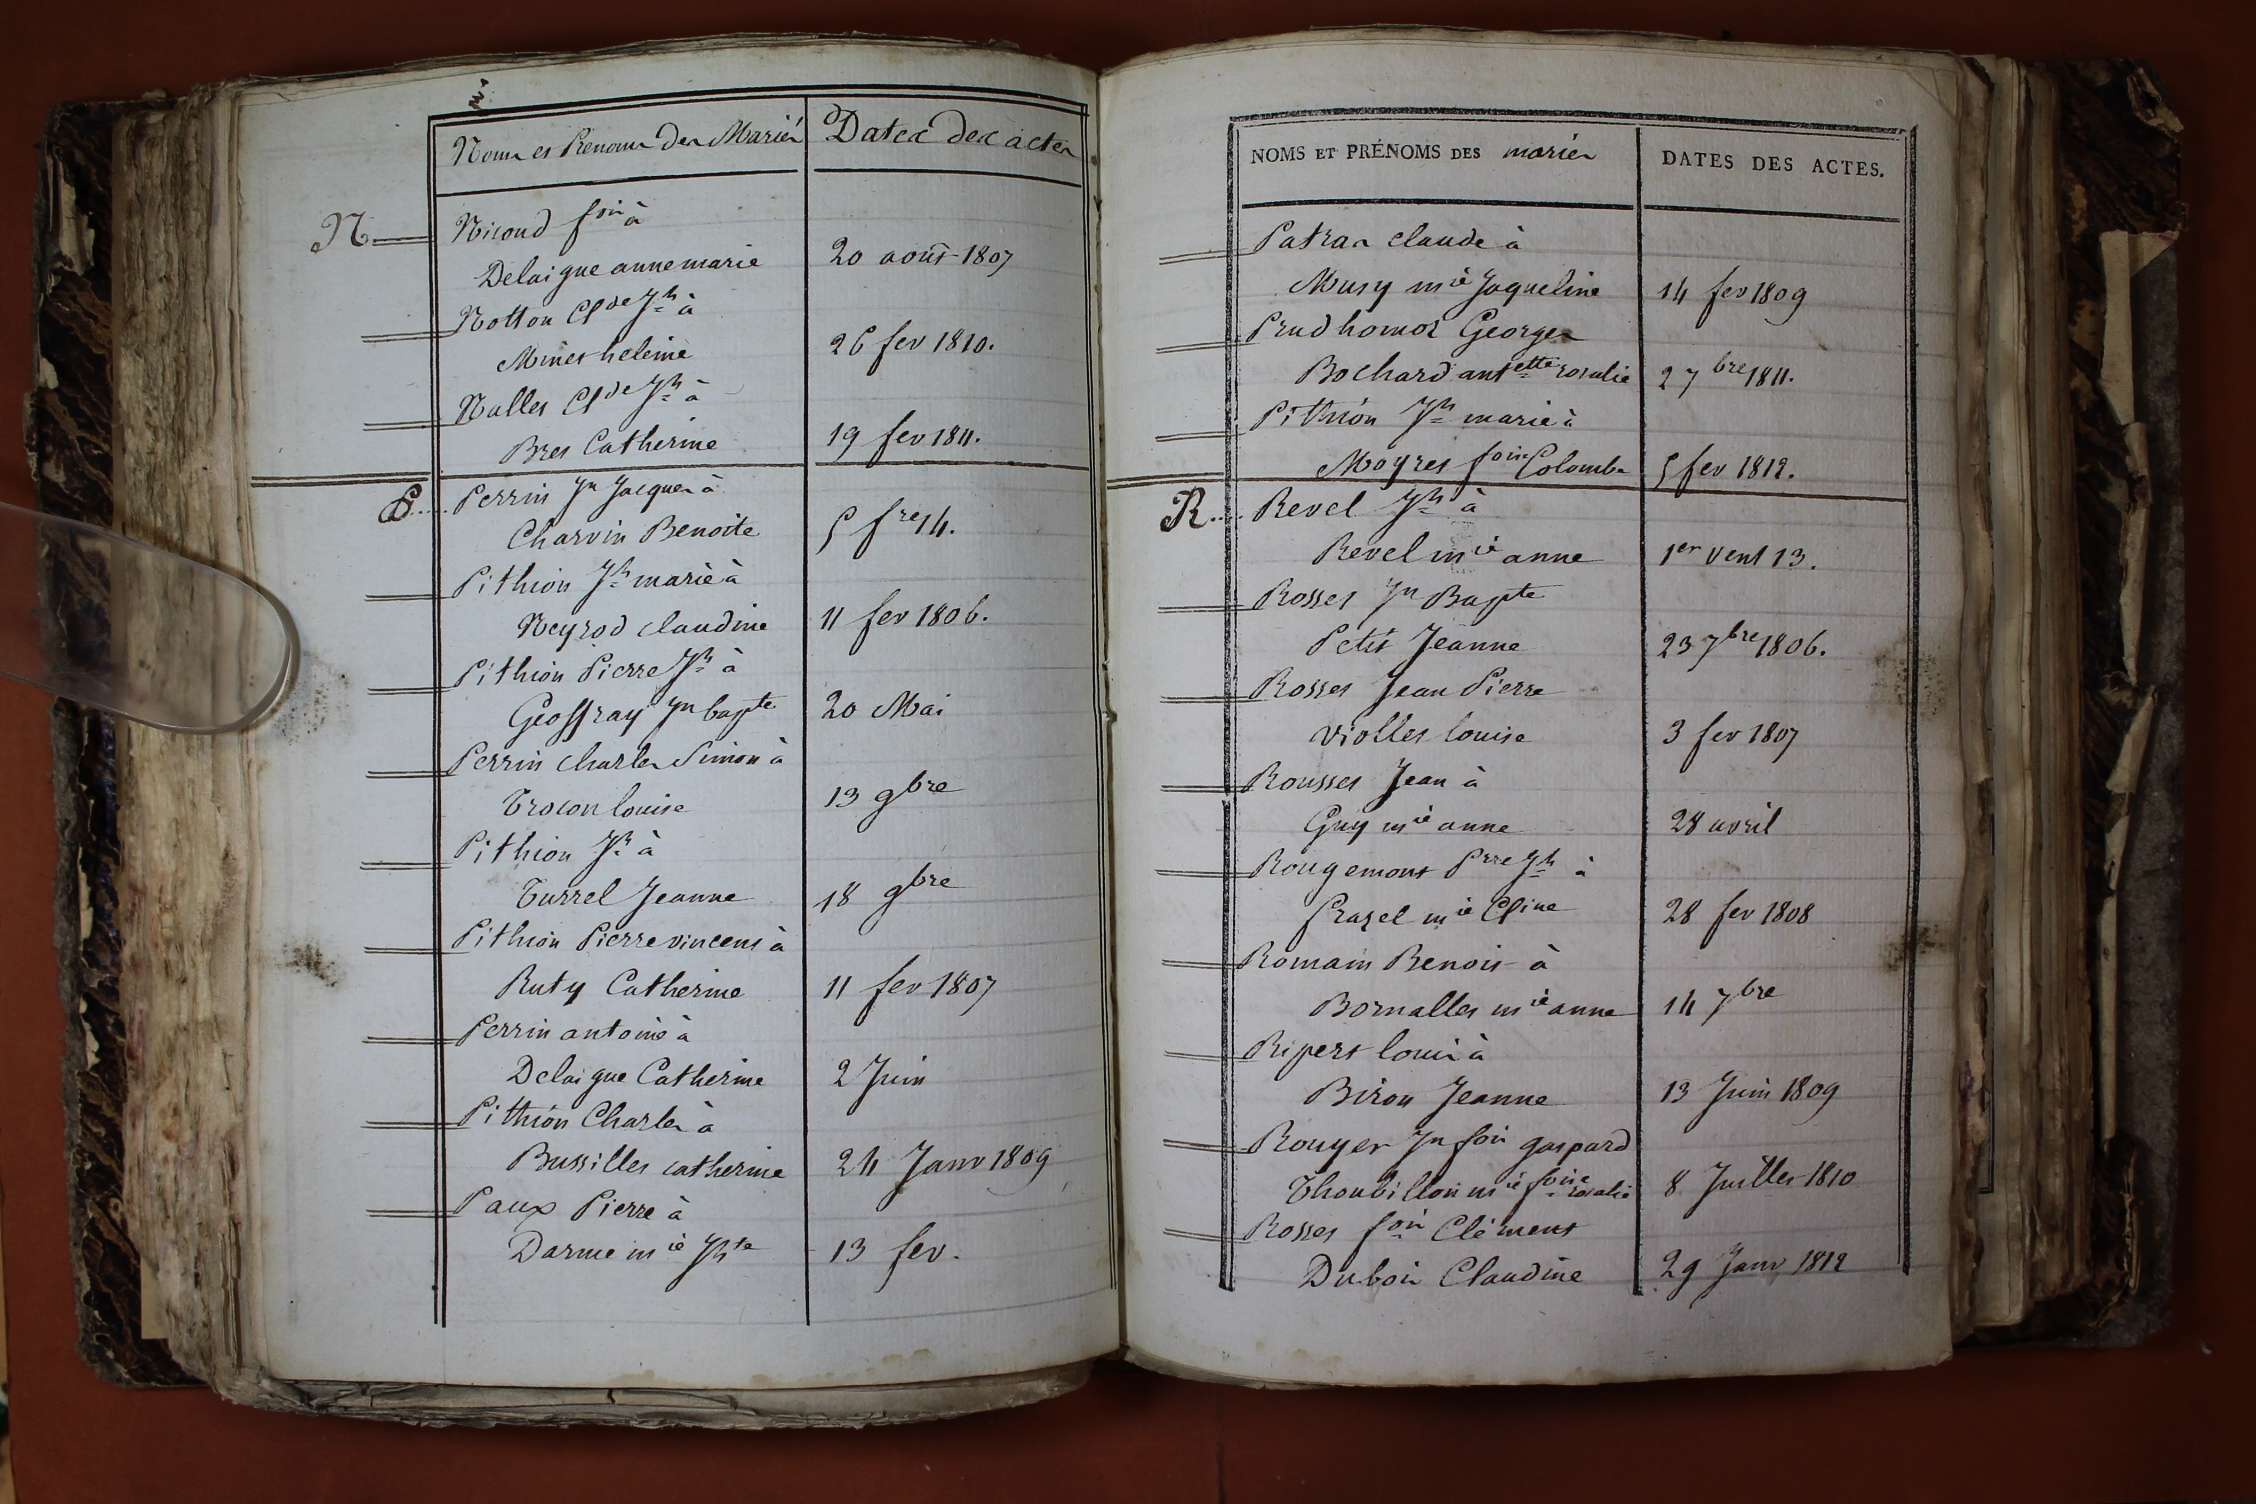 Noms et Prenoms des Mariés
Dates des actes
N
Nicoud fois à
Delaigue anne marie
20 août 1807
Notton Clde Jh à
Minet heleine
26 fev 1810.
Nallet Clde Jh à
Bres Catherine
19 fev 1811.
P
Perrin Jn Jacques à
Charvin Benoite
5 fre 14.
Pithion Jh marie à
Neyrod claudine
11 fev 1806.
Pithion Pierre Jh à
Geoffray Jn bapte
20 Mai
Perrin charles Simon à
Trocon louise
13 9bre
Pithion Jh à
Turrel Jeanne
18 9bre
Pithion Pierre vincent à
Ruty Catherine
11 fev 1807
Perrin antoine à
Delaigue Catherine
2 Juin
Pithion Charles à
Bussillet catherine
24 Janv 1809
Paux Pierre à
Darme mie Jhte
13 fev.
NOMS ET PRÉNOMS DES mariés
DATES DES ACTES.
Patras claude à
Musy mie Jaqueline
14 fev 1809
Prudhomot Georges
Bochard antette rosalie
2 7bre 1811.
Pithion Jh marie à
Moyret foise Colombe
5 fev 1812.
R
Revel Jh à
Revel mie anne
1er vent 13.
Rosset Jn Bapte
Petit Jeanne
23 7bre 1806.
Rosset Jean Pierre
Viollet louise
3 fev 1807
Rousset Jean à
Guy mie anne
28 avril
Rougemont Prre Jh à
Prazel mie Cline
28 fev 1808
Romain Benoit à
Bornallet mie anne
14 7bre
Ripert louis à
Biron Jeanne
13 Juin 1809
Rouyer Jn fois gaspard
Thoubillon mie foise rosalie
8 Juillet 1810
Rosset fois Clément
Dubois Claudine
29 Janv 1812